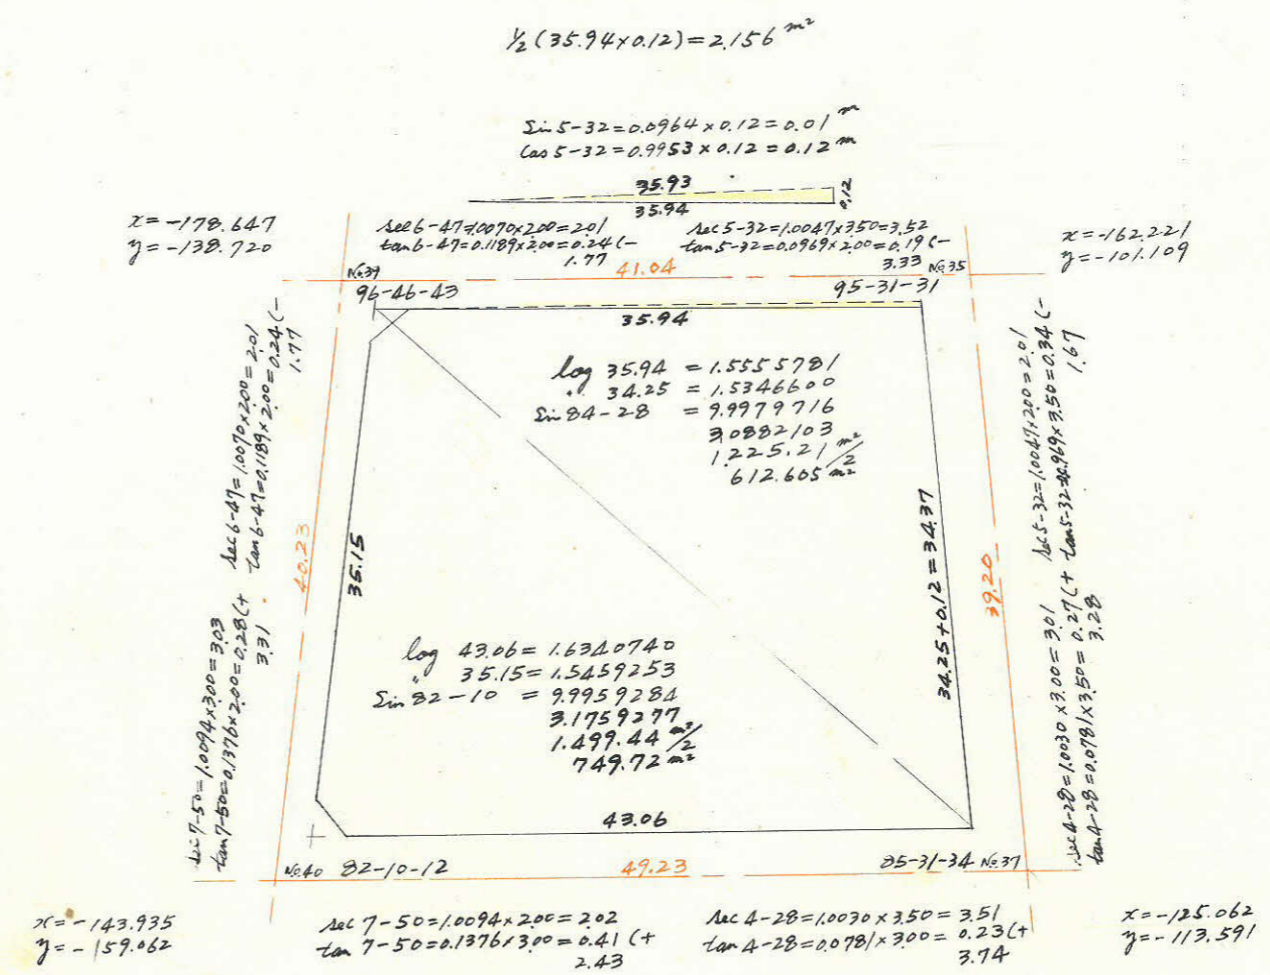 ½(35.94×0.12)=2.156 m²
Sin 5-32=0.0964×0.12=0.01 m
Cos 5-32=0.9953×0.12=0.12 m
35.93
0.12
35.94
x=-178.647
y=-138.720
sec 6-47=1.0070×2.00=2.01
tan 6-47=0.1189×2.00=0.24(-
1.77
sec 5-32=1.0047×3.50=3.52
tan 5-32=0.0969×2.00=0.19(-
3.33
x=-162.221
y=-101.109
No.39
41.04
No.35
96-46-43
95-31-31
35.94
log 35.94 =1.5555781
〃 34.25 =1.5346600
Sin 84-28 =9.9979716
3.0882103
1.225.21 m²/2
612.605 m²
sec 6-47=1.0070×2.00=2.01
tan 6-47=0.1189×2.00=0.24(-
1.77
sec 5-32=1.0047×2.00=2.01
tan 5-32=0.0969×3.50=0.34(-
1.67
40.23
35.15
34.25+0.12=34.37
39.20
log 43.06=1.6340740
〃 35.15=1.5459253
Sin 82-10 =9.9959284
3.1759277
1.499.44 m²/2
749.72 m²
sec 7-50=1.0094×3.00=3.03
tan 7-50=0.1376×2.00=0.28(+
3.31
sec 4-28=1.0030×3.00=3.01
tan 4-28=0.0781×3.50=0.27(+
3.28
43.06
No.40
82-10-12
49.23
85-31-34
No.37
x=-143.935
y=-159.062
sec 7-50=1.0094×2.00=2.02
tan 7-50=0.1376×3.00=0.41(+
2.43
sec 4-28=1.0030×3.50=3.51
tan 4-28=0.0781×3.00=0.23(+
3.74
x=-125.062
y=-113.591